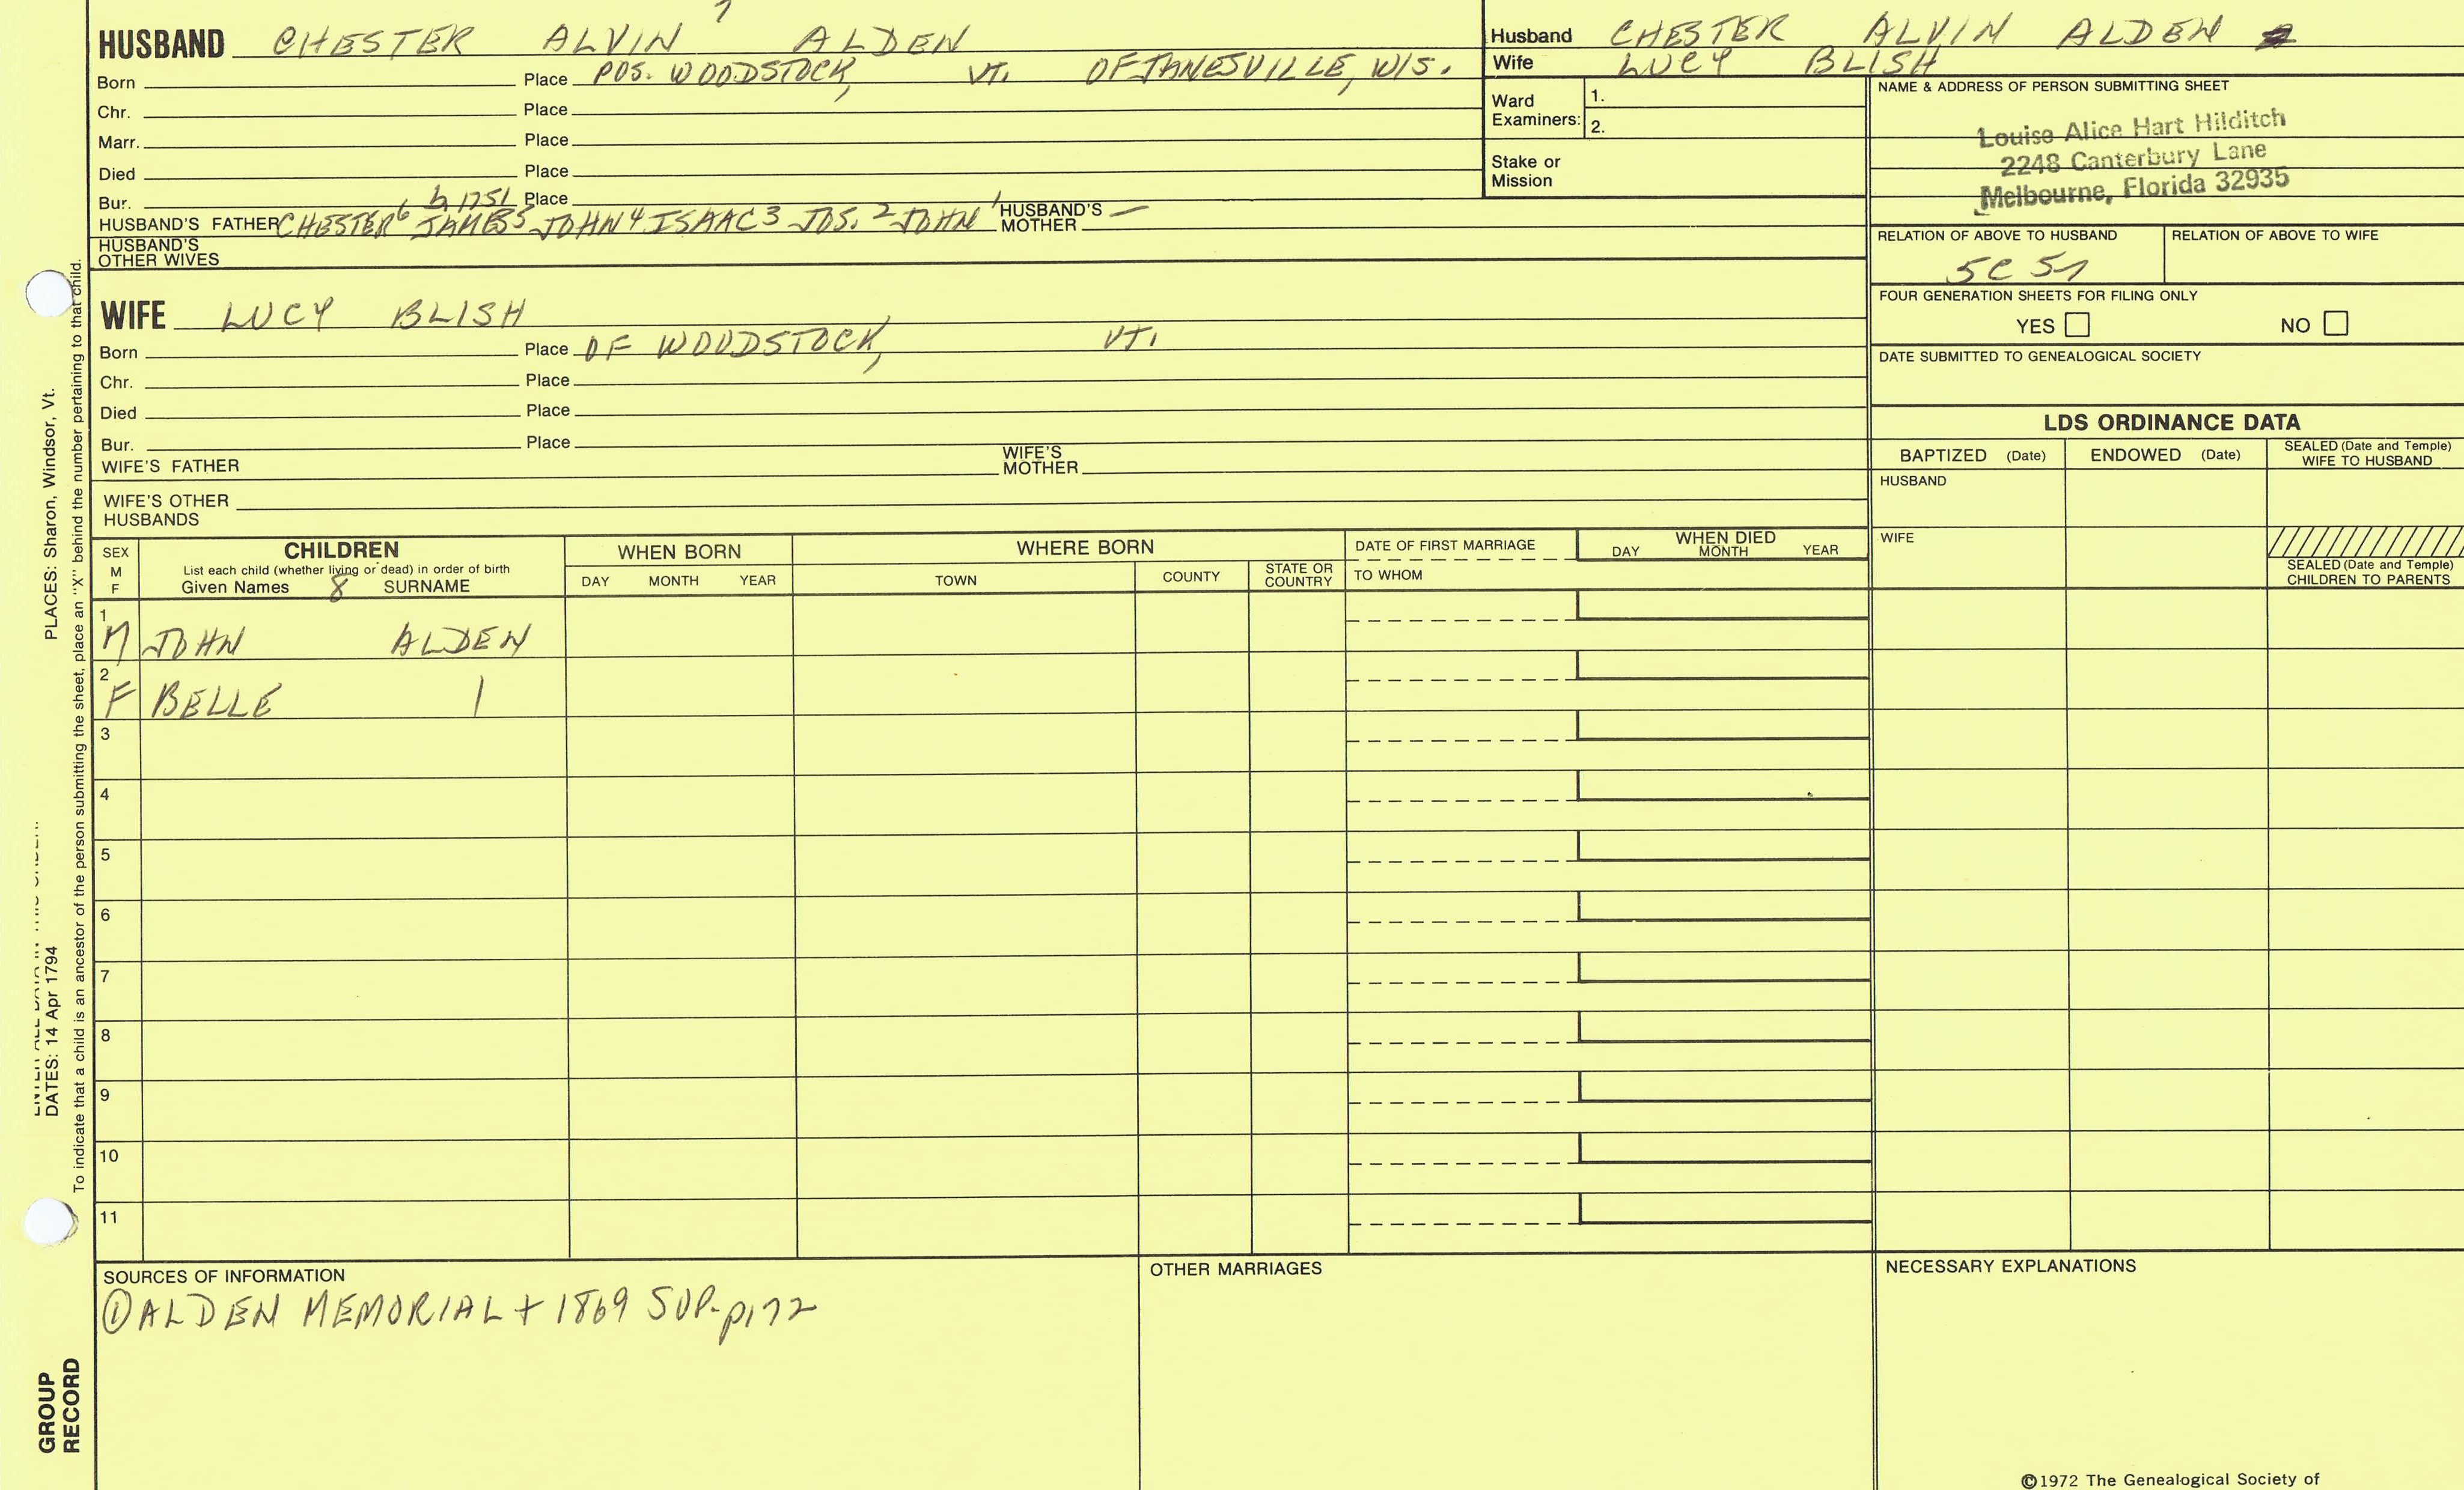 7
HUSBAND CHESTER ALVIN ALDEN
Born Place POS. WOODSTOCK, VT. OF JANESVILLE, WIS.
Chr. Place
Marr. Place
Died Place
Bur. b 1751 Place
HUSBAND'S FATHER CHESTER 6 JAMES 5 JOHN 4 ISAAC 3 JOS. 2 JOHN 1 HUSBAND'S MOTHER —
HUSBAND'S OTHER WIVES
Husband CHESTER ALVIN ALDEN
Wife LUCY BLISH
Ward Examiners: 1.
2.
Stake or Mission
NAME & ADDRESS OF PERSON SUBMITTING SHEET
Louise Alice Hart Hilditch
2248 Canterbury Lane
Melbourne, Florida 32935
RELATION OF ABOVE TO HUSBAND RELATION OF ABOVE TO WIFE
5C 5
FOUR GENERATION SHEETS FOR FILING ONLY
YES NO
DATE SUBMITTED TO GENEALOGICAL SOCIETY
WIFE LUCY BLISH
Born Place OF WOODSTOCK, VT.
Chr. Place
Died Place
Bur. Place
WIFE'S FATHER WIFE'S MOTHER
WIFE'S OTHER HUSBANDS
LDS ORDINANCE DATA
BAPTIZED (Date) ENDOWED (Date) SEALED (Date and Temple) WIFE TO HUSBAND
HUSBAND
WIFE
SEALED (Date and Temple) CHILDREN TO PARENTS
SEX M F
CHILDREN
List each child (whether living or dead) in order of birth
Given Names 8 SURNAME
WHEN BORN
DAY MONTH YEAR
WHERE BORN
TOWN COUNTY STATE OR COUNTRY
DATE OF FIRST MARRIAGE
TO WHOM
WHEN DIED
DAY MONTH YEAR
1 M JOHN ALDEN
2 F BELLE |
3
4
5
6
7
8
9
10
11
SOURCES OF INFORMATION
① ALDEN MEMORIAL + 1869 SUP. p172
OTHER MARRIAGES
NECESSARY EXPLANATIONS
©1972 The Genealogical Society of
PLACES: Sharon, Windsor, Vt.
DATES: 14 Apr 1794
To indicate that a child is an ancestor of the person submitting the sheet, place an "X" behind the number pertaining to that child.
GROUP
RECORD